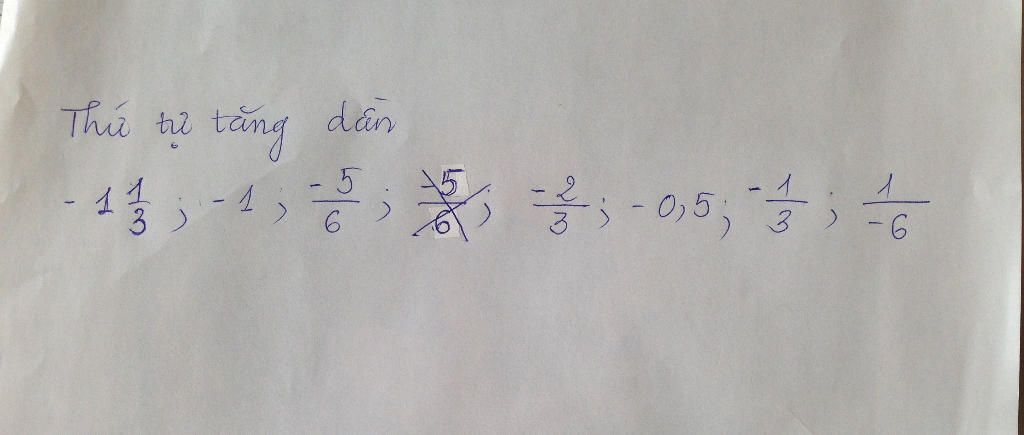 Thứ tự tăng dần
- 1 1/3 ; - 1 ; -5/6 ; -5/6 ; -2/3 ; - 0,5 ; -1/3 ; 1/-6